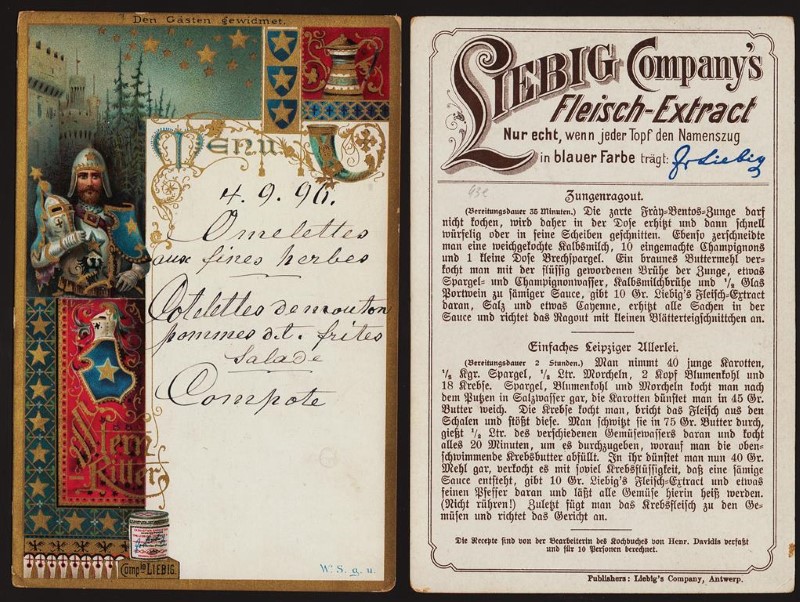 Den Gästen gewidmet.
Menu
4. 9. 96.
Omelettes
aux fines herbes
Cotelettes de mouton
pommes d.t. frites
Salade
Compote
Stern
-Ritter
Compie LIEBIG.
W. S. g. u.
LIEBIG Company's
Fleisch-Extract
Nur echt, wenn jeder Topf den Namenszug
in blauer Farbe trägt: J v Liebig
Zungenragout.
(Bereitungsdauer 35 Minuten.) Die zarte Fray-Bentos-Zunge darf
nicht kochen, wird daher in der Dose erhitzt und dann schnell
würfelig oder in feine Scheiben geschnitten. Ebenso zerschneidet
man eine weichgekochte Kalbsmilch, 10 eingemachte Champignons
und 1 kleine Dose Brechspargel. Ein braunes Buttermehl ver-
kocht man mit der flüssig gewordenen Brühe der Zunge, etwas
Spargel- und Champignonwasser, Kalbsmilchbrühe und ⅛ Glas
Portwein zu sämiger Sauce, gibt 10 Gr. Liebig's Fleisch-Extract
daran, Salz und etwas Cayenne, erhitzt alle Sachen in der
Sauce und richtet das Ragout mit kleinen Blätterteigschnittchen an.
Einfaches Leipziger Allerlei.
(Bereitungsdauer 2 Stunden.) Man nimmt 40 junge Karotten,
½ Kgr. Spargel, ½ Ltr. Morcheln, 2 Kopf Blumenkohl und
18 Krebse. Spargel, Blumenkohl und Morcheln kocht man nach
dem Putzen in Salzwasser gar, die Karotten dünstet man in 45 Gr.
Butter weich. Die Krebse kocht man, bricht das Fleisch aus den
Schalen und stößt diese. Man schwitzt sie in 75 Gr. Butter durch,
gießt ½ Ltr. des verschiedenen Gemüsewassers daran und kocht
alles 20 Minuten, um es durchzugeben, worauf man die oben-
schwimmende Krebsbutter abfüllt. In ihr dünstet man nun 40 Gr.
Mehl gar, verkocht es mit soviel Krebsflüssigkeit, daß eine sämige
Sauce entsteht, gibt 10 Gr. Liebig's Fleisch-Extract und etwas
feinen Pfeffer daran und läßt alle Gemüse hierin heiß werden.
(Nicht rühren!) Zuletzt fügt man das Krebsfleisch zu den Ge-
müsen und richtet das Gericht an.
Die Recepte sind von der Bearbeiterin des Kochbuches von Henr. Davidis verfaßt
und für 10 Personen berechnet.
Publishers: Liebig's Company, Antwerp.